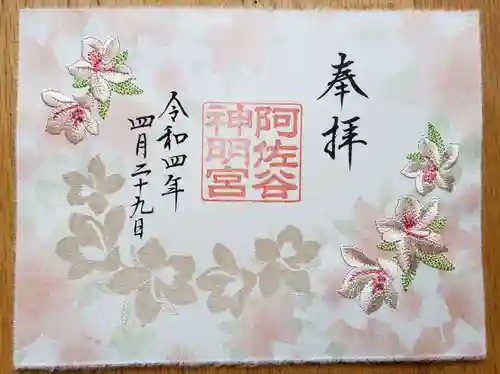 奉拝
阿佐谷
神明宮
令和四年
四月二十九日